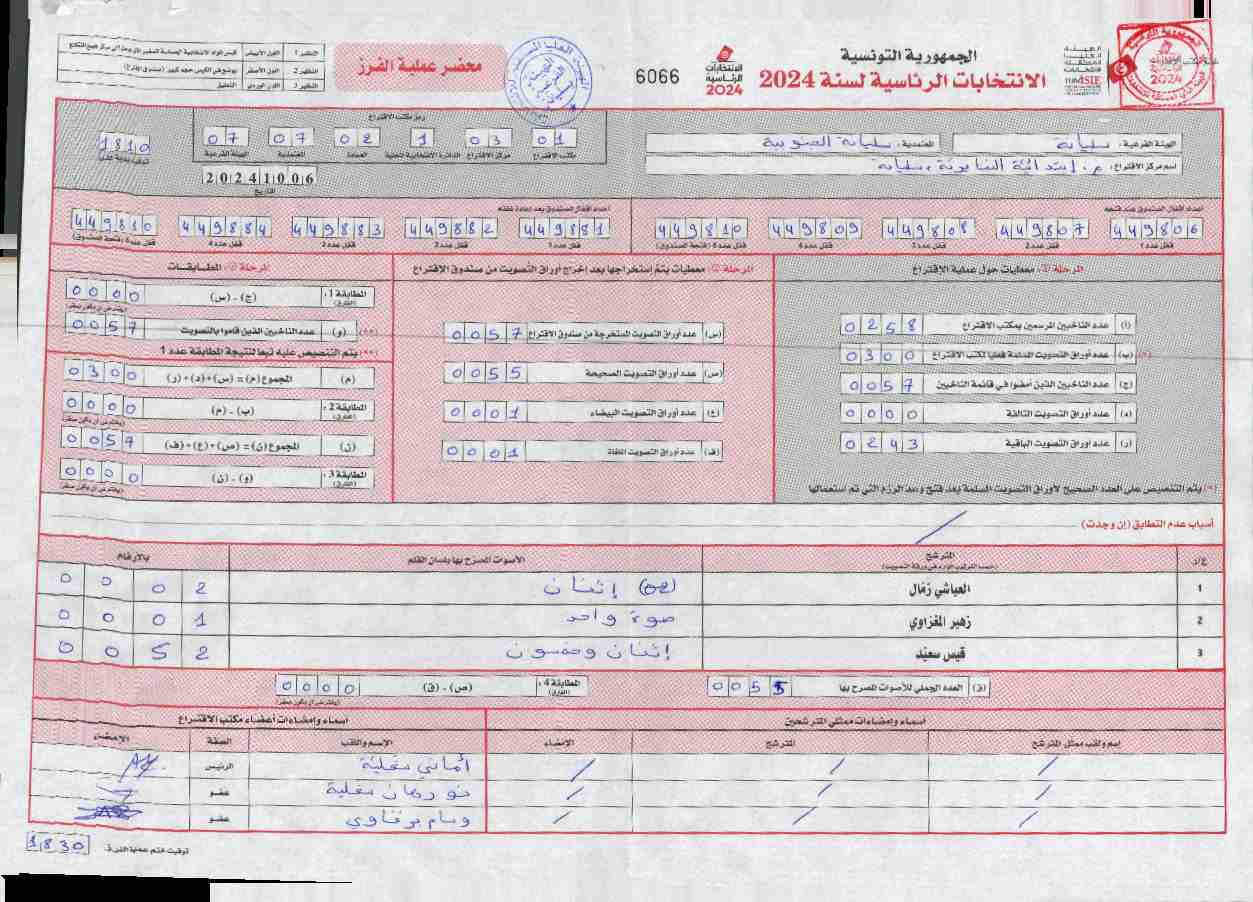 الجمهورية التونسية
الانتخابات الرئاسية لسنة 2024
الانتخابات الرئاسية 2024
6066
محضر عملية الفرز
النظير 1
النظير 2
النظير 3
الهيئة الفرعية: سليانة
المعتمدية: سليانة الجنوبية
اسم مركز الاقتراع:
رمز مكتب الاقتراع
01 03 1 02 07 07
مكتب الاقتراع مركز الاقتراع الدائرة الانتخابية المحلية العمادة المعتمدية الهيئة الفرعية
1810
20241006
التاريخ
أعداد أقفال الصندوق عند فتحه
449806 449807 449808 449809 449810
قفل عدد 1 قفل عدد 2 قفل عدد 3 قفل عدد 4 قفل عدد 5 (فتحة الصندوق)
أعداد أقفال الصندوق بعد إعادة غلقه
449881 449882 449883 449884 449810
قفل عدد 1 قفل عدد 2 قفل عدد 3 قفل عدد 4 قفل عدد 5 (فتحة الصندوق)
المرحلة (1): معطيات حول عملية الاقتراع
(أ) عدد الناخبين المرسمين بمكتب الاقتراع 0258
(*) (ب) عدد أوراق التصويت المسلمة فعليا لمكتب الاقتراع 0300
(ج) عدد الناخبين الذين أمضوا في قائمة الناخبين 0057
(د) عدد أوراق التصويت التالفة 0000
(ر) عدد أوراق التصويت الباقية 0243
(*) يتم التنصيص على العدد الصحيح لأوراق التصويت المسلمة بعد فتح وعد الرزم التي تم استعمالها
المرحلة (2): معطيات يتم استخراجها بعد إخراج أوراق التصويت من صندوق الاقتراع
(س) عدد أوراق التصويت المستخرجة من صندوق الاقتراع 0057
(ص) عدد أوراق التصويت الصحيحة 0055
(ع) عدد أوراق التصويت البيضاء 0001
(ف) عدد أوراق التصويت الملغاة 0001
المرحلة (3): المطابقات
المطابقة 1: (الفارق) (ج) - (س) 0000
(**) (و) عدد الناخبين الذين قاموا بالتصويت 0057
(**) يتم التنصيص عليه تبعا لنتيجة المطابقة عدد 1
(م) المجموع (م) = (س) + (د) + (ر) 0300
المطابقة 2: (الفارق) (ب) - (م) 0000
(ن) المجموع (ن) = (ص) + (ع) + (ف) 0057
المطابقة 3: (الفارق) (و) - (ن) 0000
أسباب عدم التطابق (إن وجدت)
ع/د المترشح الأصوات المصرح بها بلسان القلم بالأرقام
(حسب الترتيب الوارد في ورقة التصويت)
1 العياشي زمّال (02) إثنان 0002
2 زهير المغزاوي صوت واحد 0001
3 قيس سعيّد إثنان وخمسون 0052
(ق) العدد الجملي للأصوات المصرح بها 0055
المطابقة 4: (الفارق) (ص) - (ق) 0000
أسماء وإمضاءات ممثلي المترشحين
إسم ولقب ممثل المترشح المترشح الإمضاء
أسماء وإمضاءات أعضاء مكتب الاقتراع
الإسم واللقب الصفة الإمضاء
الرئيس
عضو
عضو
توقيت ختم عملية الفرز: 1830